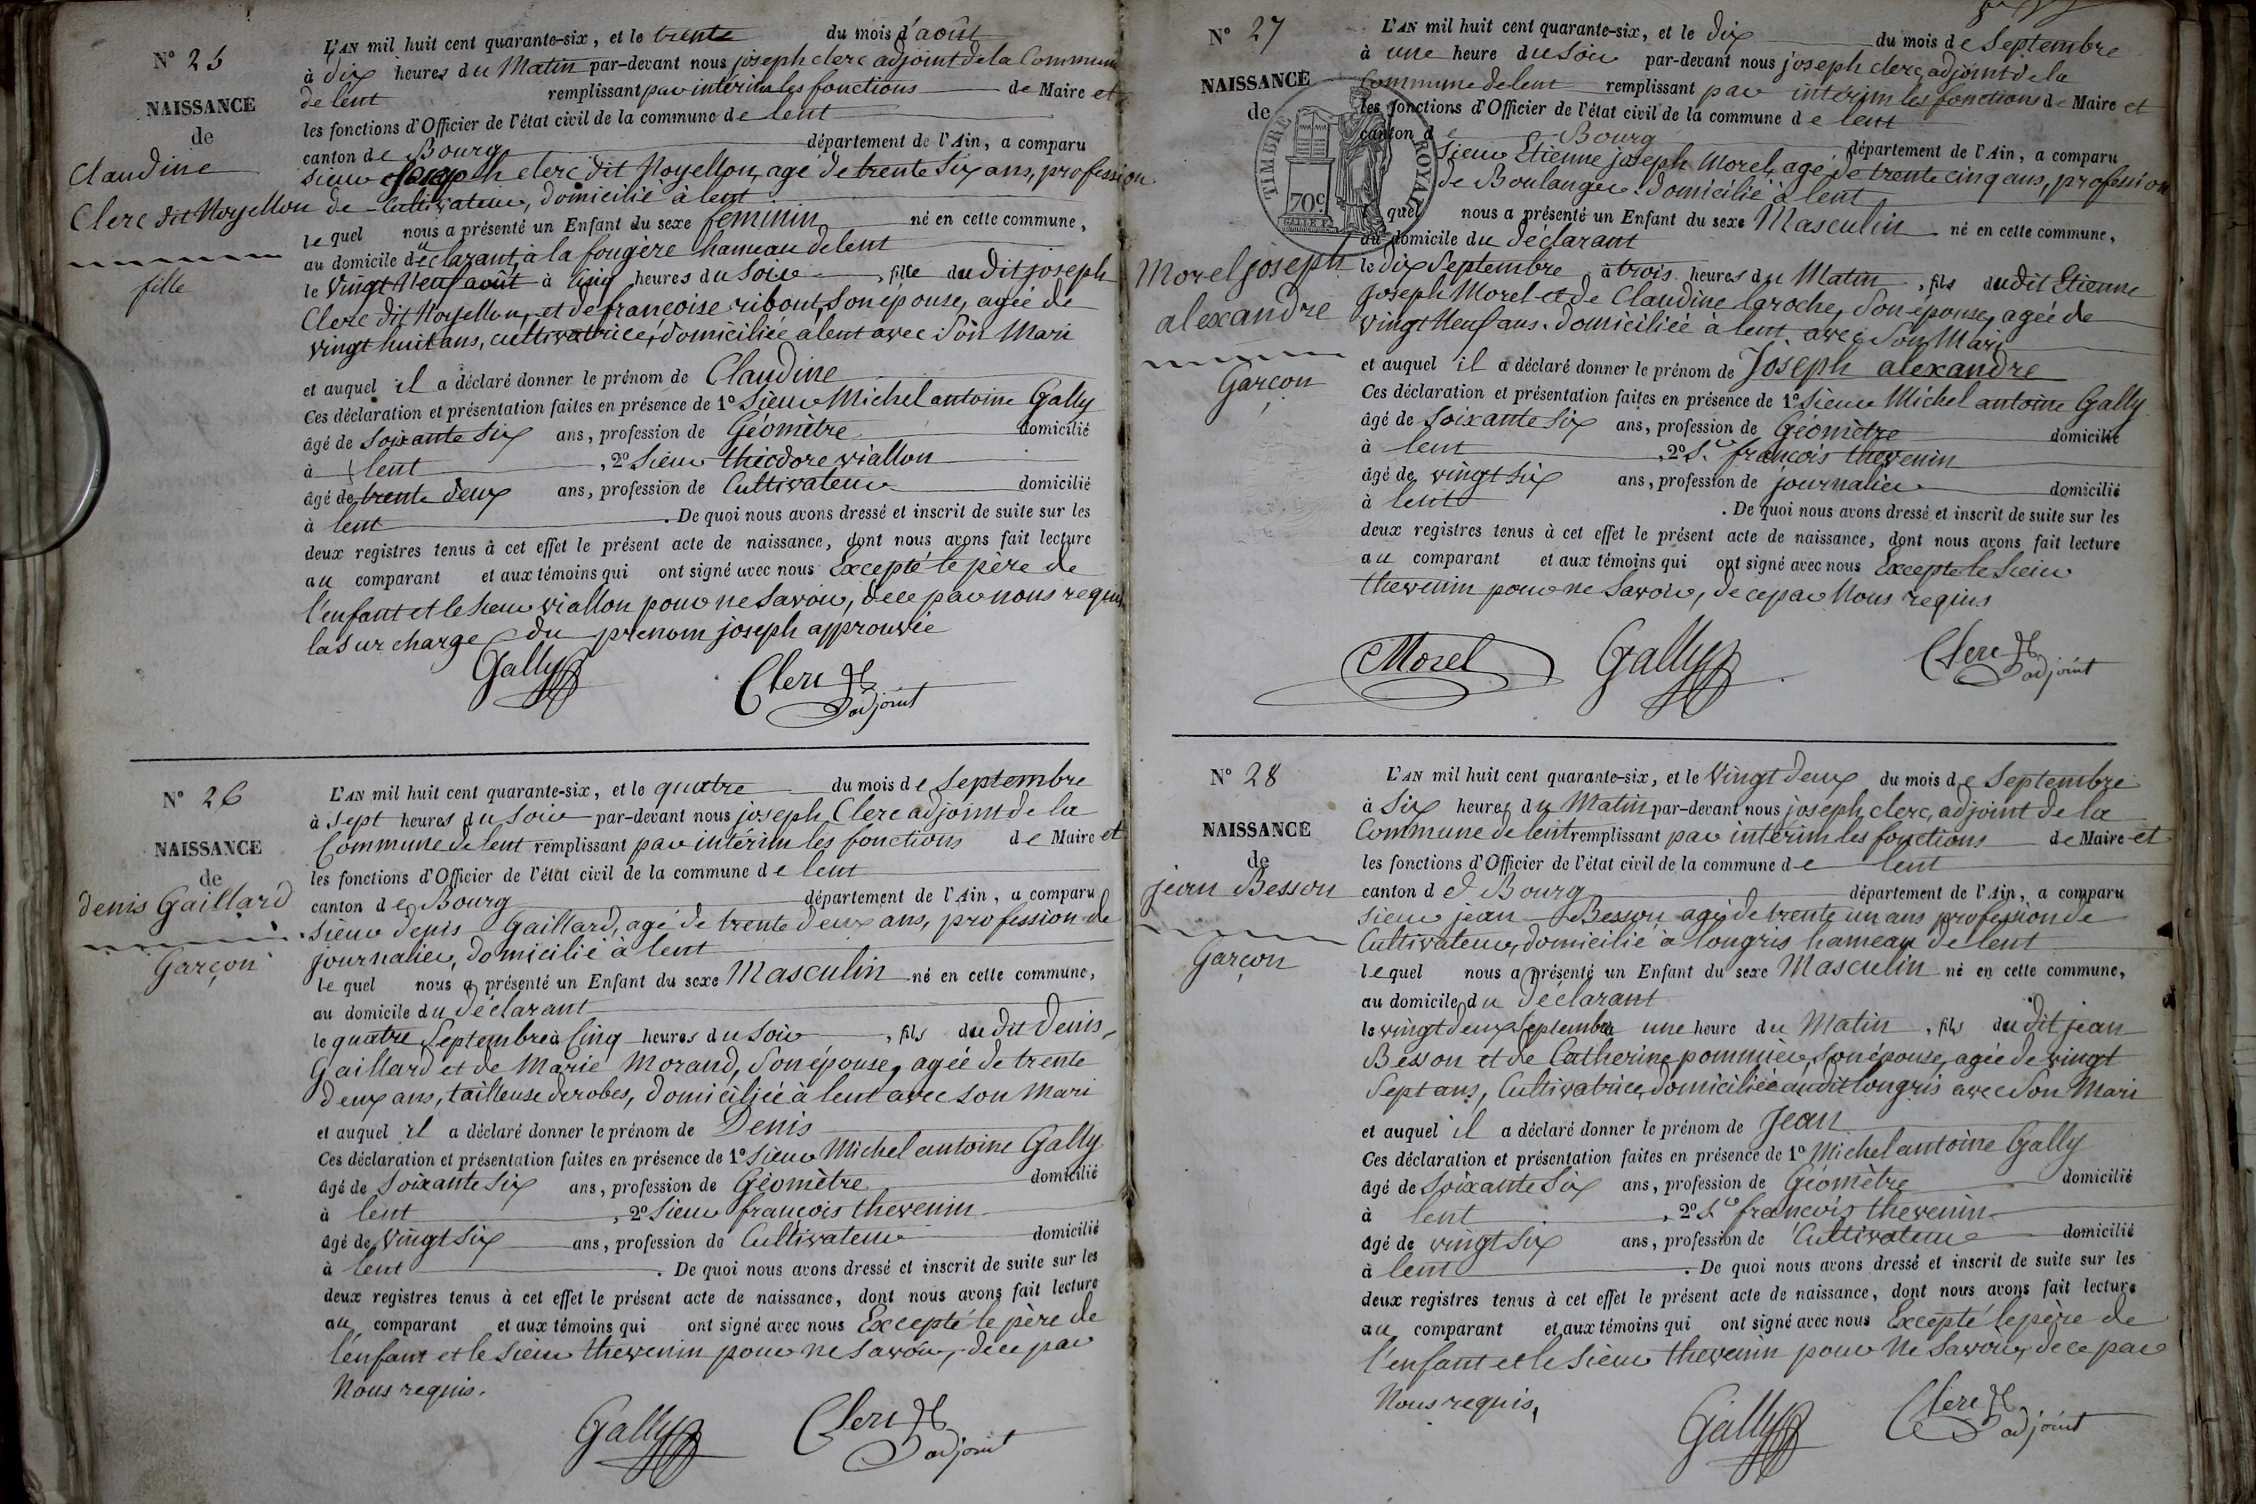 N° 25
NAISSANCE
de
Claudine
Clerc dit Noyellon
fille
L'AN mil huit cent quarante-six, et le trente du mois d'août
à dix heures du Matin par-devant nous joseph clerc adjoint de la Commune
de lent remplissant par intérim les fonctions de Maire et
les fonctions d'Officier de l'état civil de la commune de lent
canton de Bourg département de l'Ain, a comparu
sieur joseph clerc dit Noyellon, agé de trente six ans, profession
de Cultivateur, domicilié à lent
lequel nous a présenté un Enfant du sexe féminin né en cette commune,
au domicile du déclarant, à la fougère hameau de lent
le Vingt Neuf août à Cinq heures du Soir, fille du dit joseph
Clerc dit Noyellon, et de francoise ribout, Son épouse, agée de
vingt huit ans, cultivatrice, domiciliée à lent avec Son Mari
et auquel il a déclaré donner le prénom de Claudine
Ces déclaration et présentation faites en présence de 1° Sieur Michel antoine Gally
âgé de soixante Six ans, profession de Géomètre domicilié
à lent, 2° Sieur théodore viallon
âgé de trente deux ans, profession de Cultivateur domicilié
à lent. De quoi nous avons dressé et inscrit de suite sur les
deux registres tenus à cet effet le présent acte de naissance, dont nous avons fait lecture
au comparant et aux témoins qui ont signé avec nous Excepté le père de
l'enfant et le sieur viallon pour ne Savoir, de ce par nous requis,
la Sur charge du prénom joseph approuvée
Gally
Clerc
adjoint
N° 26
NAISSANCE
de
denis Gaillard
Garçon
L'AN mil huit cent quarante-six, et le quatre du mois de Septembre
à sept heures du Soir par-devant nous joseph Clerc adjoint de la
Commune de lent remplissant par intérim les fonctions de Maire et
les fonctions d'Officier de l'état civil de la commune de lent
canton de Bourg département de l'Ain, a comparu
Sieur denis Gaillard, agé de trente deux ans, profession de
journalier, domicilié à lent
lequel nous a présenté un Enfant du sexe Masculin né en cette commune,
au domicile du déclarant
le quatre Septembre à Cinq heures du Soir, fils du dit Denis
Gaillard et de Marie Morand, Son épouse, agée de trente
deux ans, tailleuse de robes, domiciliée à lent avec son Mari
et auquel il a déclaré donner le prénom de Denis
Ces déclaration et présentation faites en présence de 1° Sieur Michel antoine Gally
âgé de Soixante Six ans, profession de Géomètre domicilié
à lent, 2° Sieur françois thevenin
âgé de Vingt Six ans, profession de Cultivateur domicilié
à lent. De quoi nous avons dressé et inscrit de suite sur les
deux registres tenus à cet effet le présent acte de naissance, dont nous avons fait lecture
au comparant et aux témoins qui ont signé avec nous Excepté le père de
l'enfant et le Sieur thevenin pour ne Savoir, de ce par
Nous requis.
Gally
Clerc
adjoint
N° 27
NAISSANCE
de
Morel joseph
alexandre
Garçon
TIMBRE ROYAL
70c
L'AN mil huit cent quarante-six, et le dix du mois de Septembre
à une heure du Soir par-devant nous joseph clerc, adjoint de la
Commune de lent remplissant par intérim les fonctions de Maire et
les fonctions d'Officier de l'état civil de la commune de lent
canton de Bourg département de l'Ain, a comparu
Sieur Etienne joseph Morel, agé de trente cinq ans, profession
de Boulanger. domicilié à lent
lequel nous a présenté un Enfant du sexe Masculin né en cette commune,
au domicile du déclarant
le dix Septembre à trois heures du Matin, fils du dit Etienne
Joseph Morel et de Claudine laroche, Son épouse, agée de
vingt Neuf ans. domiciliée à lent avec Son Mari
et auquel il a déclaré donner le prénom de Joseph alexandre
Ces déclaration et présentation faites en présence de 1° Sieur Michel antoine Gally
âgé de Soixante Six ans, profession de Géomètre domicilié
à lent, 2° Sr françois thevenin
âgé de vingt Six ans, profession de journalier domicilié
à lent. De quoi nous avons dressé et inscrit de suite sur les
deux registres tenus à cet effet le présent acte de naissance, dont nous avons fait lecture
au comparant et aux témoins qui ont signé avec nous Excepté le Sieur
thevenin pour ne Savoir, de ce par Nous requis
Morel
Gally
Clerc
adjoint
N° 28
NAISSANCE
de
jean Besson
Garçon
L'AN mil huit cent quarante-six, et le Vingt deux du mois de Septembre
à Six heures du Matin par-devant nous joseph clerc, adjoint de la
Commune de lent remplissant par intérim les fonctions de Maire et
les fonctions d'Officier de l'état civil de la commune de lent
canton de Bourg département de l'Ain, a comparu
Sieur jean Besson, agé de trente un ans profession de
Cultivateur, domicilié à longris hameau de lent
lequel nous a présenté un Enfant du sexe Masculin né en cette commune,
au domicile du déclarant
le vingt deux Septembre une heure du Matin, fils du dit jean
Besson et de Catherine pommier, son épouse, agée de vingt
Sept ans, Cultivatrice, domiciliée au dit longris avec Son Mari
et auquel il a déclaré donner le prénom de Jean
Ces déclaration et présentation faites en présence de 1° Michel antoine Gally
âgé de Soixante Six ans, profession de Géomètre domicilié
à lent, 2° Sr françois thevenin
âgé de vingt Six ans, profession de Cultivateur domicilié
à lent. De quoi nous avons dressé et inscrit de suite sur les
deux registres tenus à cet effet le présent acte de naissance, dont nous avons fait lecture
au comparant et aux témoins qui ont signé avec nous Excepté le père de
l'enfant et le Sieur thevenin pour Ne Savoir, de ce par
Nous requis,
Gally
Clerc
adjoint